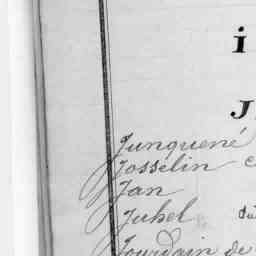 i
J
Junquené
Josselin
Jan
Juhel du
Jourdain de